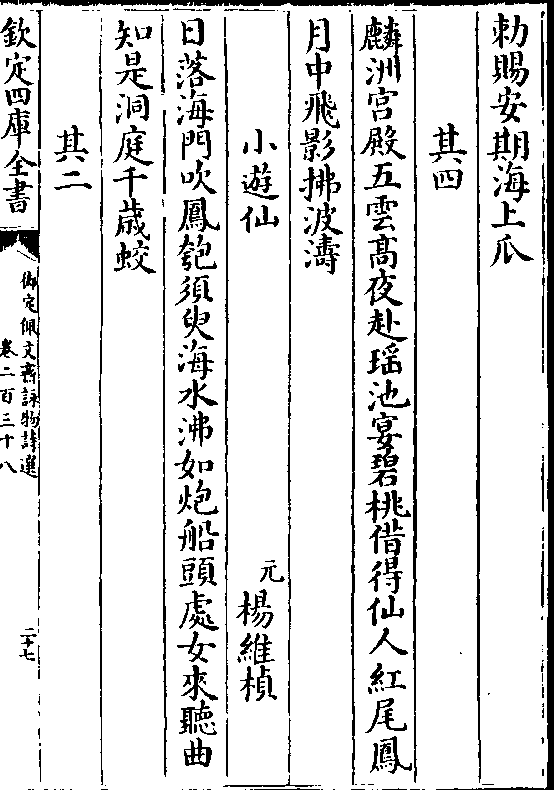 勅賜安期海上瓜
其四
麟洲宫殿五雲髙夜赴瑶池宴碧桃借得仙人紅尾鳳
月中飛影拂波濤
小遊仙
元楊維楨
日落海門吹鳳匏須臾海水沸如炮船頭處女來聽曲
知是洞庭千歳蛟
其二
欽定四庫全書
御定佩文齋詠物詩選
卷二百三十八
二十七